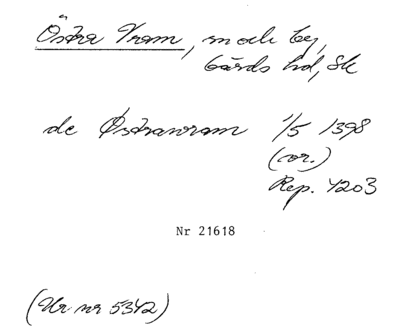 Östra Vram, sn och by,
Gärds hd, Sk
de Østrawram 1/5 1398
(cor.)
Rep. 4203
Nr 21618
(Ur nr 5342)